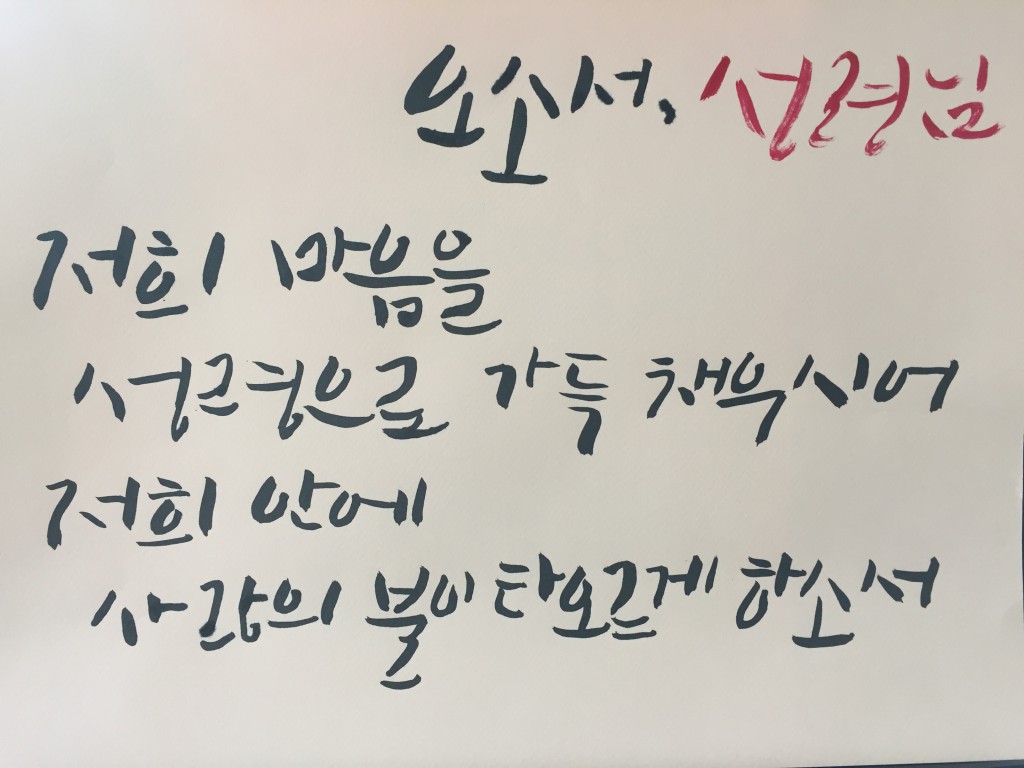 오소서, 성령님
저희 마음을
성령으로 가득 채우시어
저희 안에
사랑의 불이 타오르게 하소서